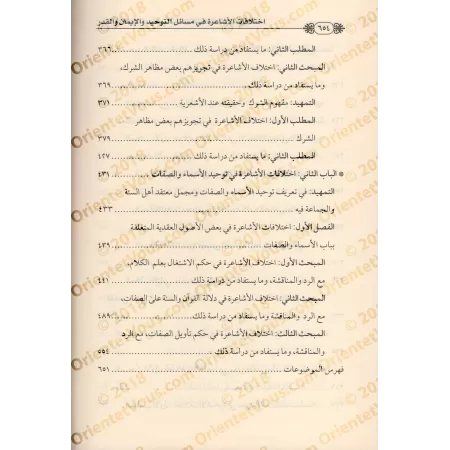 ٦٥٤ اختلافات الأشاعرة في مسائل التوحيد والإيمان والقدر
المطلب الثاني: ما يستفاد من دراسة ذلك ٣٦٦
المبحث الثاني: اختلاف الأشاعرة في تجويزهم بعض مظاهر الشرك،
وما يستفاد من دراسة ذلك ٣٦٩
التمهيد: مفهوم الشرك وحقيقته عند الأشعرية ٣٧١
المطلب الأول: اختلاف الأشاعرة في تجويزهم بعض مظاهر
الشرك ٣٧٩
المطلب الثاني: ما يستفاد من دراسة ذلك ٤٢٧
* الباب الثاني: اختلافات الأشاعرة في توحيد الأسماء والصفات ٤٣١
التمهيد: في تعريف توحيد الأسماء والصفات ومجمل معتقد أهل السنة
والجماعة فيه ٤٣٣
الفصل الأول: اختلافات الأشاعرة في بعض الأصول العقدية المتعلقة
بباب الأسماء والصفات ٤٣٩
المبحث الأول: اختلاف الأشاعرة في حكم الاشتغال بعلم الكلام،
مع الرد والمناقشة، وما يستفاد من دراسة ذلك ٤٤١
المبحث الثاني: اختلاف الأشاعرة في دلالة القرآن والسنة على الصفات،
مع الرد والمناقشة وما يستفاد من دراسة ذلك ٤٨٩
المبحث الثالث: اختلاف الأشاعرة في حكم تأويل الصفات، مع الرد
والمناقشة، وما يستفاد من دراسة ذلك ٥٥٤
فهرس الموضوعات ٦٥١
Orientetous.com © 2018